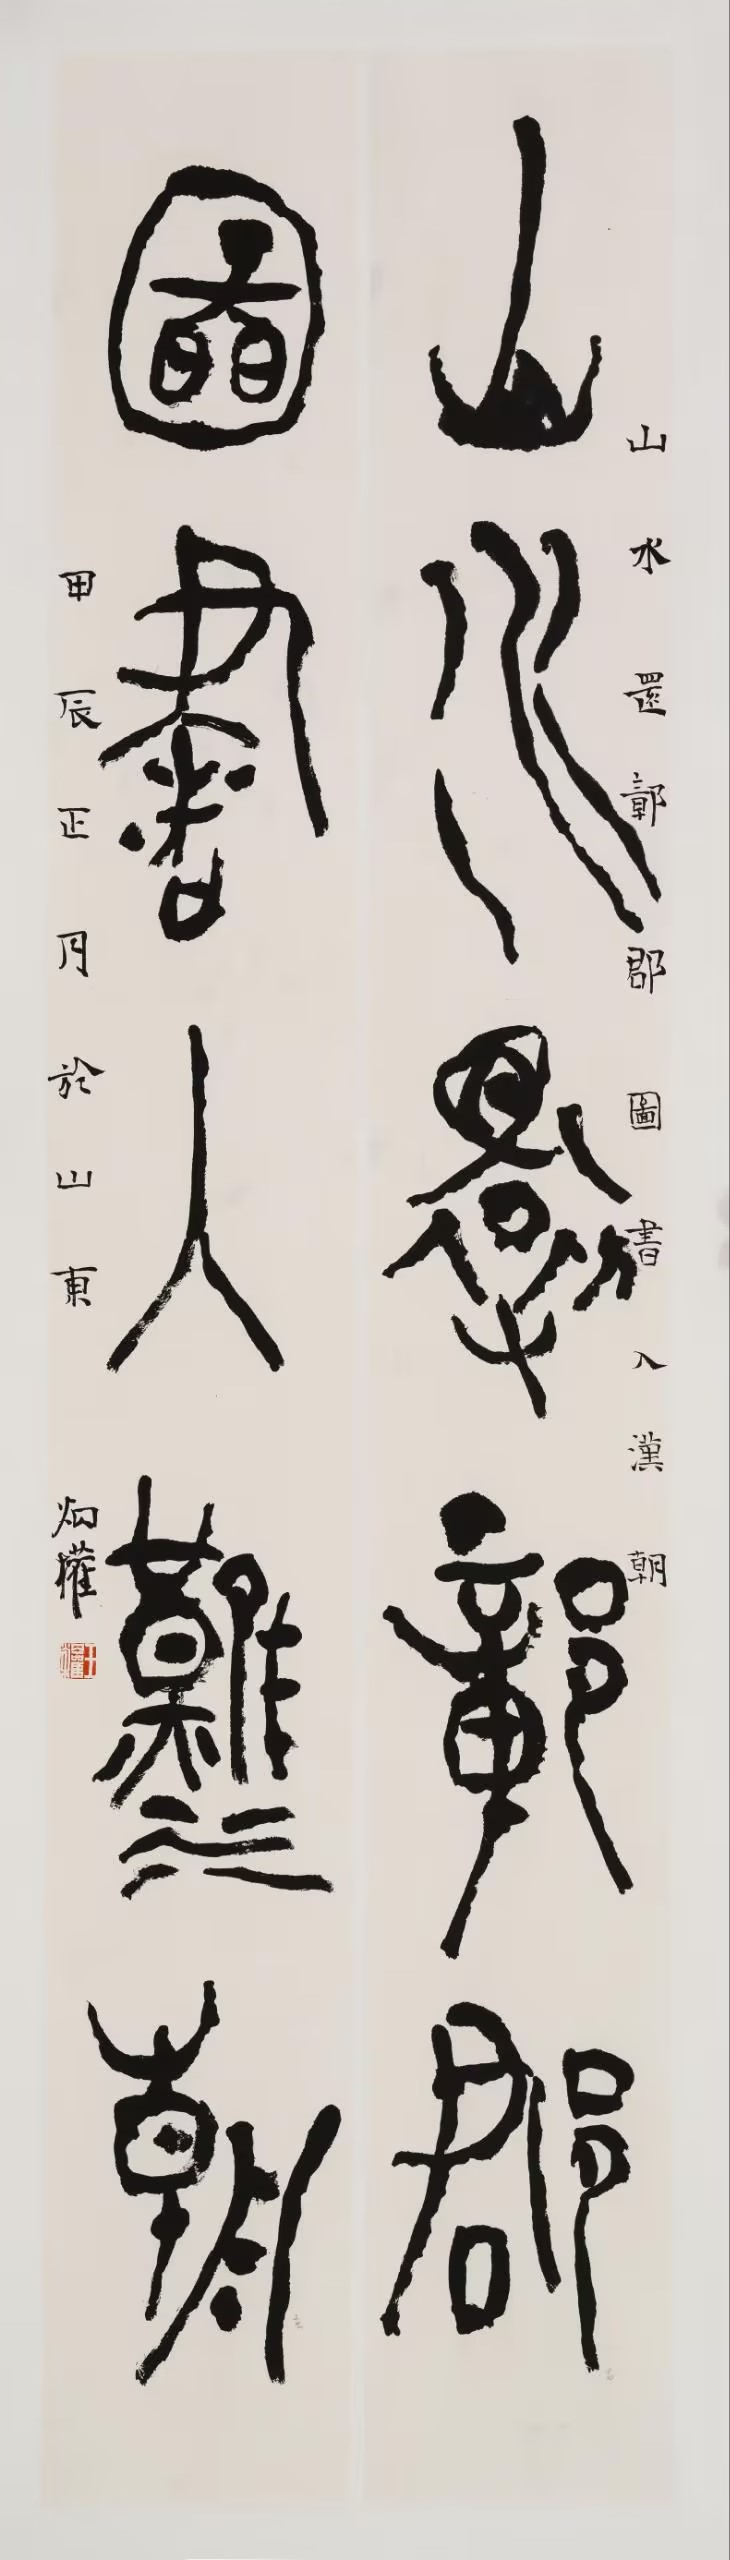 山水還鄣郡圖書入漢朝
山水還鄣郡
圖書入漢朝
甲辰正月於山東